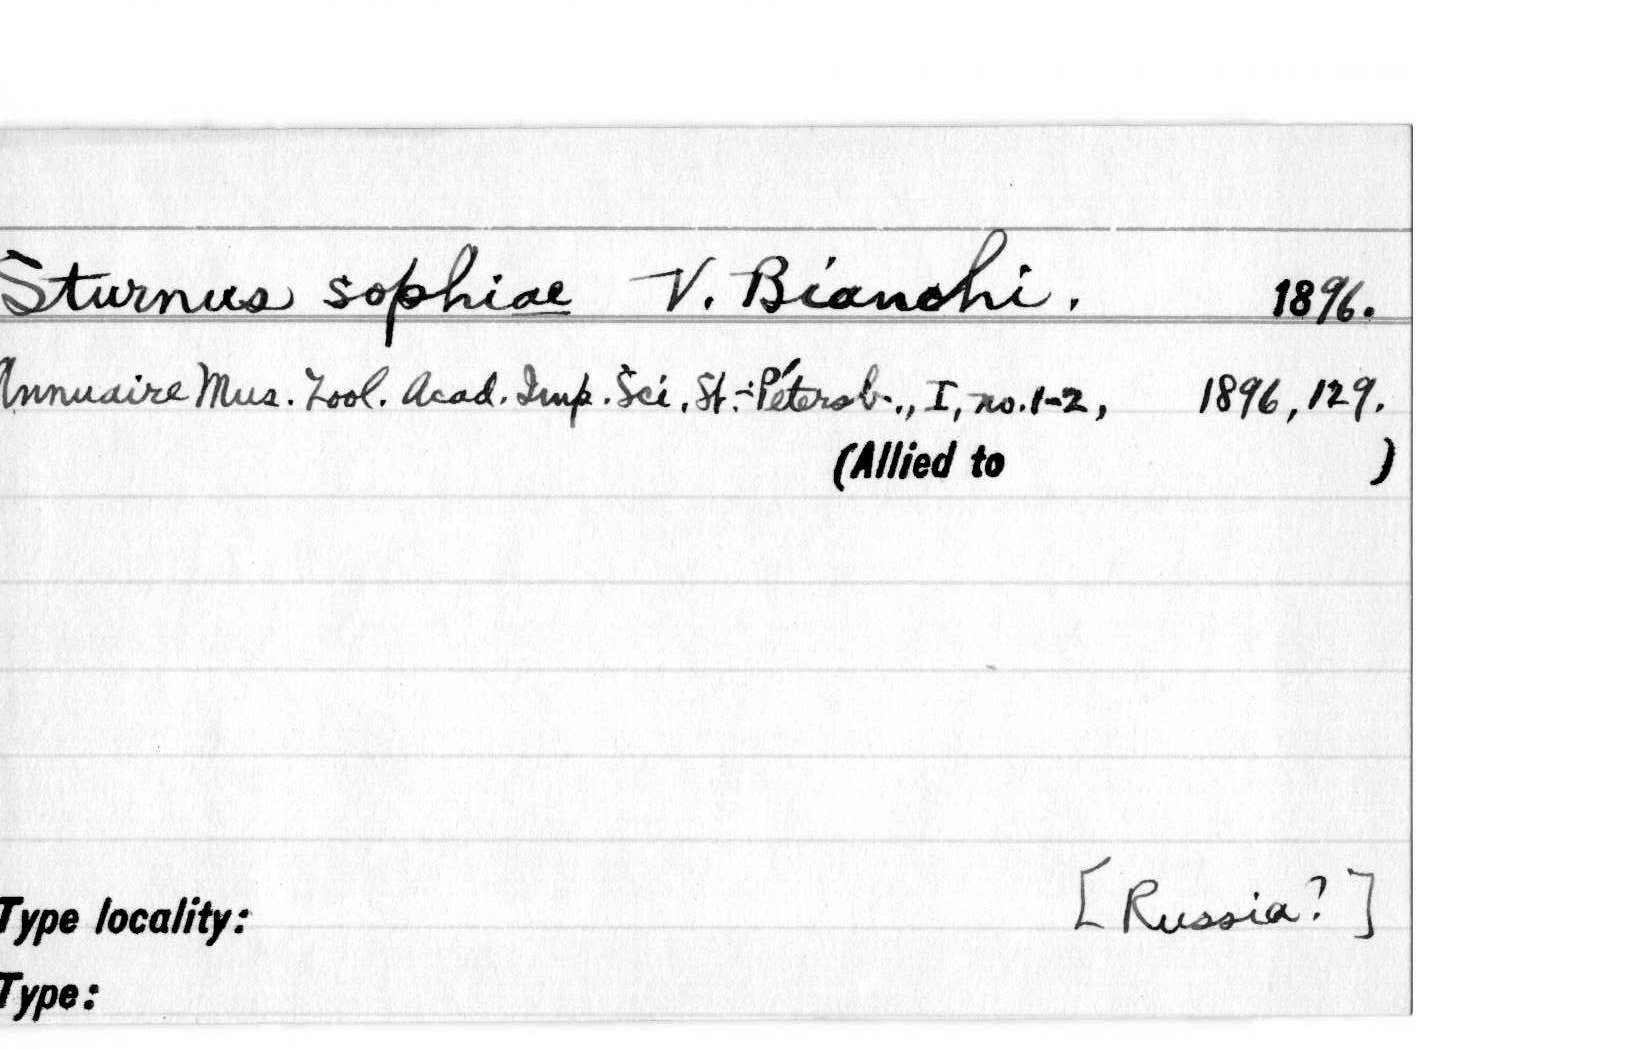 Sturnus sophiae V. Bianchi. 1896.
Annuaire Mus. Zool. Acad. Imp. Sci. St.-Pétersb., I, no. 1-2, 1896, 129.
(Allied to )
[Russia?]
Type locality:
Type: